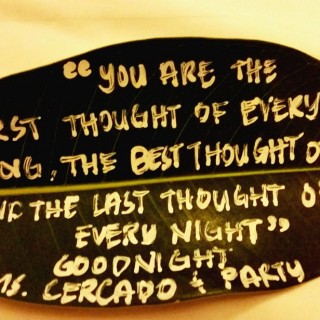 "YOU ARE THE
RST THOUGHT OF EVERY
NG, THE BEST THOUGHT O
ND THE LAST THOUGHT O
EVERY NIGHT"
GOODNIGHT
MS. CERCADO & PARTY